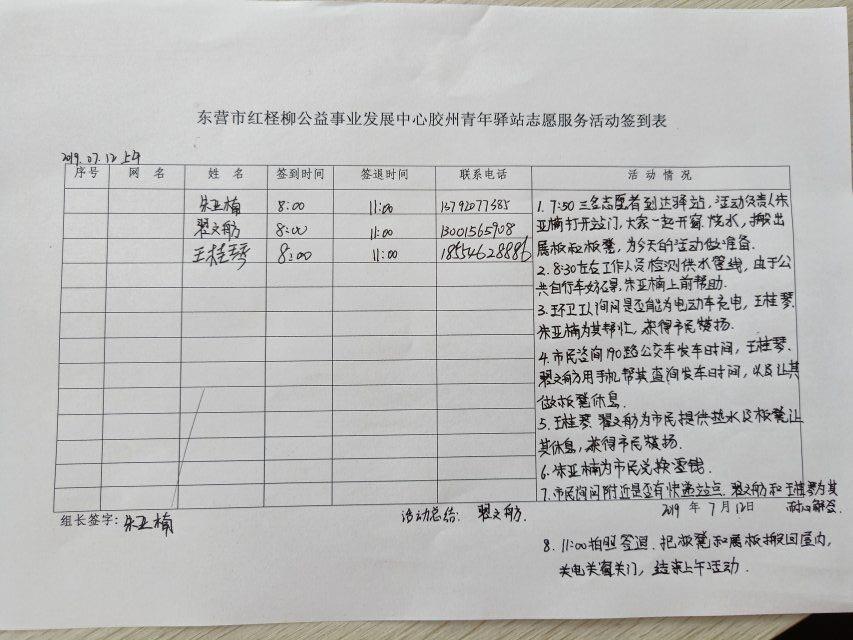 东营市红柽柳公益事业发展中心胶州青年驿站志愿服务活动签到表
2019.07.12 上午
序号 网名 姓名 签到时间 签退时间 联系电话 活动情况
朱亚楠 8:00 11:00 13792077385
翟文舫 8:00 11:00 13001565908
王桂琴 8:00 11:00 18554628886
1. 7:50 三名志愿者到达驿站,活动负责人朱
亚楠打开站门,大家一起开窗.烧水,搬出
展板和板凳,为今天的活动做准备.
2. 8:30左右工作人员检测供水管线,由于公
共自行车妨碍,朱亚楠上前帮助.
3. 环卫工人询问是否能为电动车充电,王桂琴.
朱亚楠为其帮忙,获得市民赞扬.
4. 市民咨询190路公交车发车时间,王桂琴.
翟文舫用手机帮其查询发车时间,以及让其
做板凳休息.
5. 王桂琴 翟文舫为市民提供热水及板凳让
其休息,获得市民赞扬.
6. 朱亚楠为市民兑换零钱.
7. 市民询问附近是否有快递站点.翟文舫和王桂琴为其
耐心解答.
2019年7月12日
组长签字:朱亚楠
活动总结:翟文舫.
8. 11:00拍照签退.把板凳和展板搬回屋内,
关电关窗关门,结束上午活动.